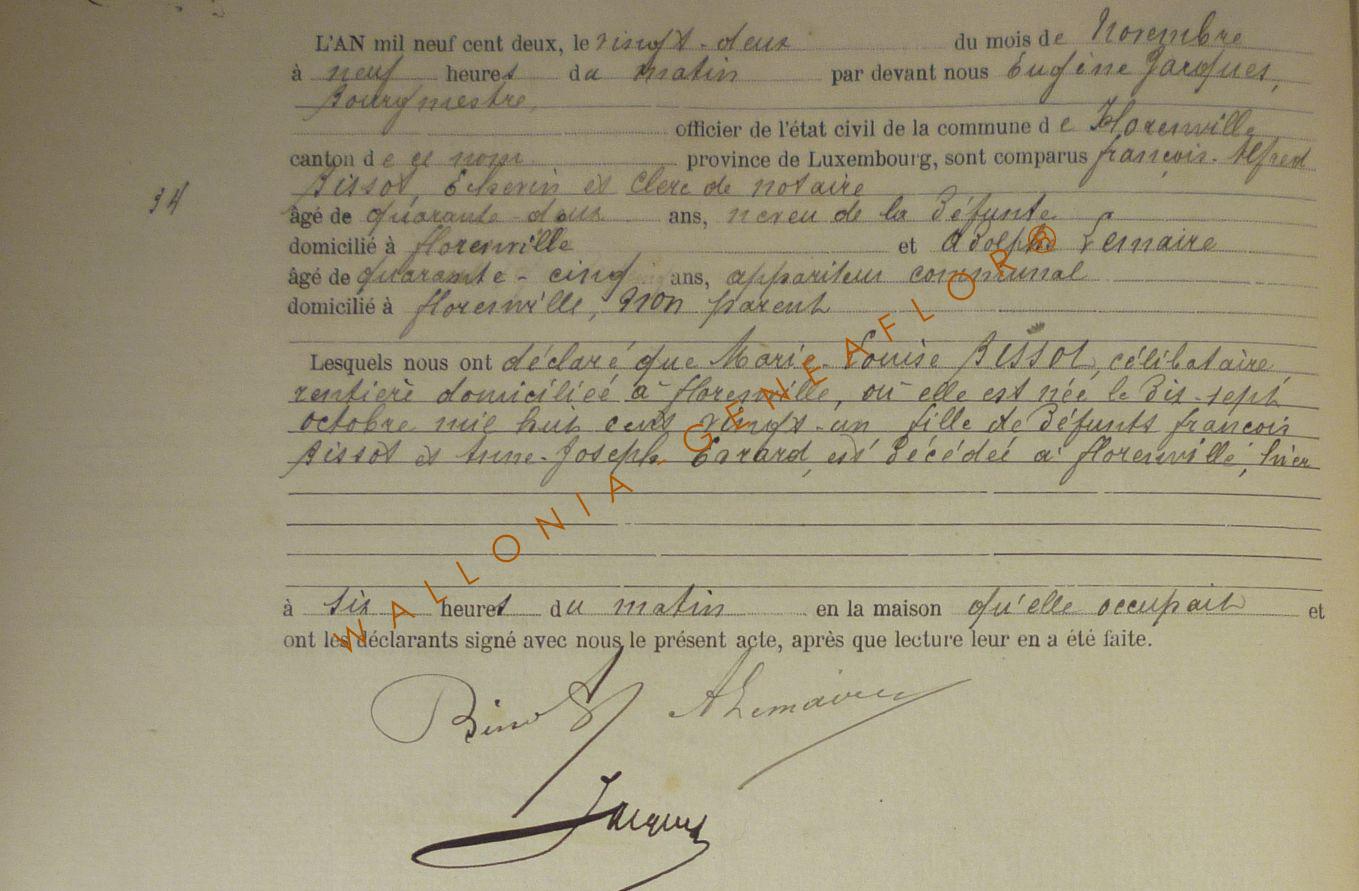 L'AN mil neuf cent deux, le vingt-deux du mois de Novembre
à neuf heures du matin par devant nous Eugène Jacques,
Bourgmestre,
officier de l'état civil de la commune de Florenville
canton de ce nom province de Luxembourg, sont comparus françois-Alfred
Bissot, Echevin et Clerc de notaire
34
âgé de quarante-deux ans, neveu de la Défunte
domicilié à florenville et Adolphe Lemaire
âgé de quarante-cinq ans, appariteur communal
domicilié à florenville, non parent
Lesquels nous ont déclaré que Marie-Louise Bissot, célibataire,
rentière domiciliée à florenville, où elle est née le Dix-sept
octobre mil huit cent vingt-un fille de Défunts françois
Bissot et Anne-Joseph Evrard, est Décédée à florenville, hier
à six heures du matin en la maison qu'elle occupait et
ont les déclarants signé avec nous le présent acte, après que lecture leur en a été faite.
Bissot ALemaire
Jacques
WALLONIA - GENEAFLOR®